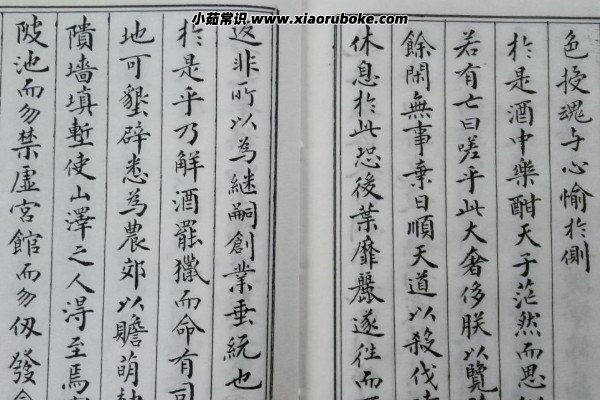 小茹常识 www.xiaoruboke.com
色授魂与心愉扵側
扵是酒中樂酣天子茫然而思
若有亡曰嗟乎此大奢侈朕以覽
餘閑無事棄日順天道以殺伐
休息扵此恐後葉靡麗遂徃而
返非所以為継嗣創業垂統也
扵是乎乃解酒罷獵而命有司
地可墾辟悉為農郊以贍萌
隤墻填塹使山澤之人得至焉
陂池而勿禁虛宮館而勿仭發